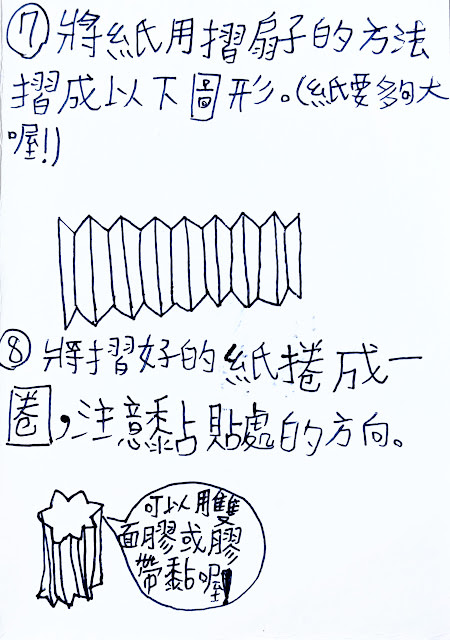 ⑦將紙用摺扇子的方法
摺成以下圖形。(紙要夠大
喔!)
⑧將摺好的紙捲成一
圈,注意黏貼處的方向。
可以用雙
面膠或膠
帶黏喔!